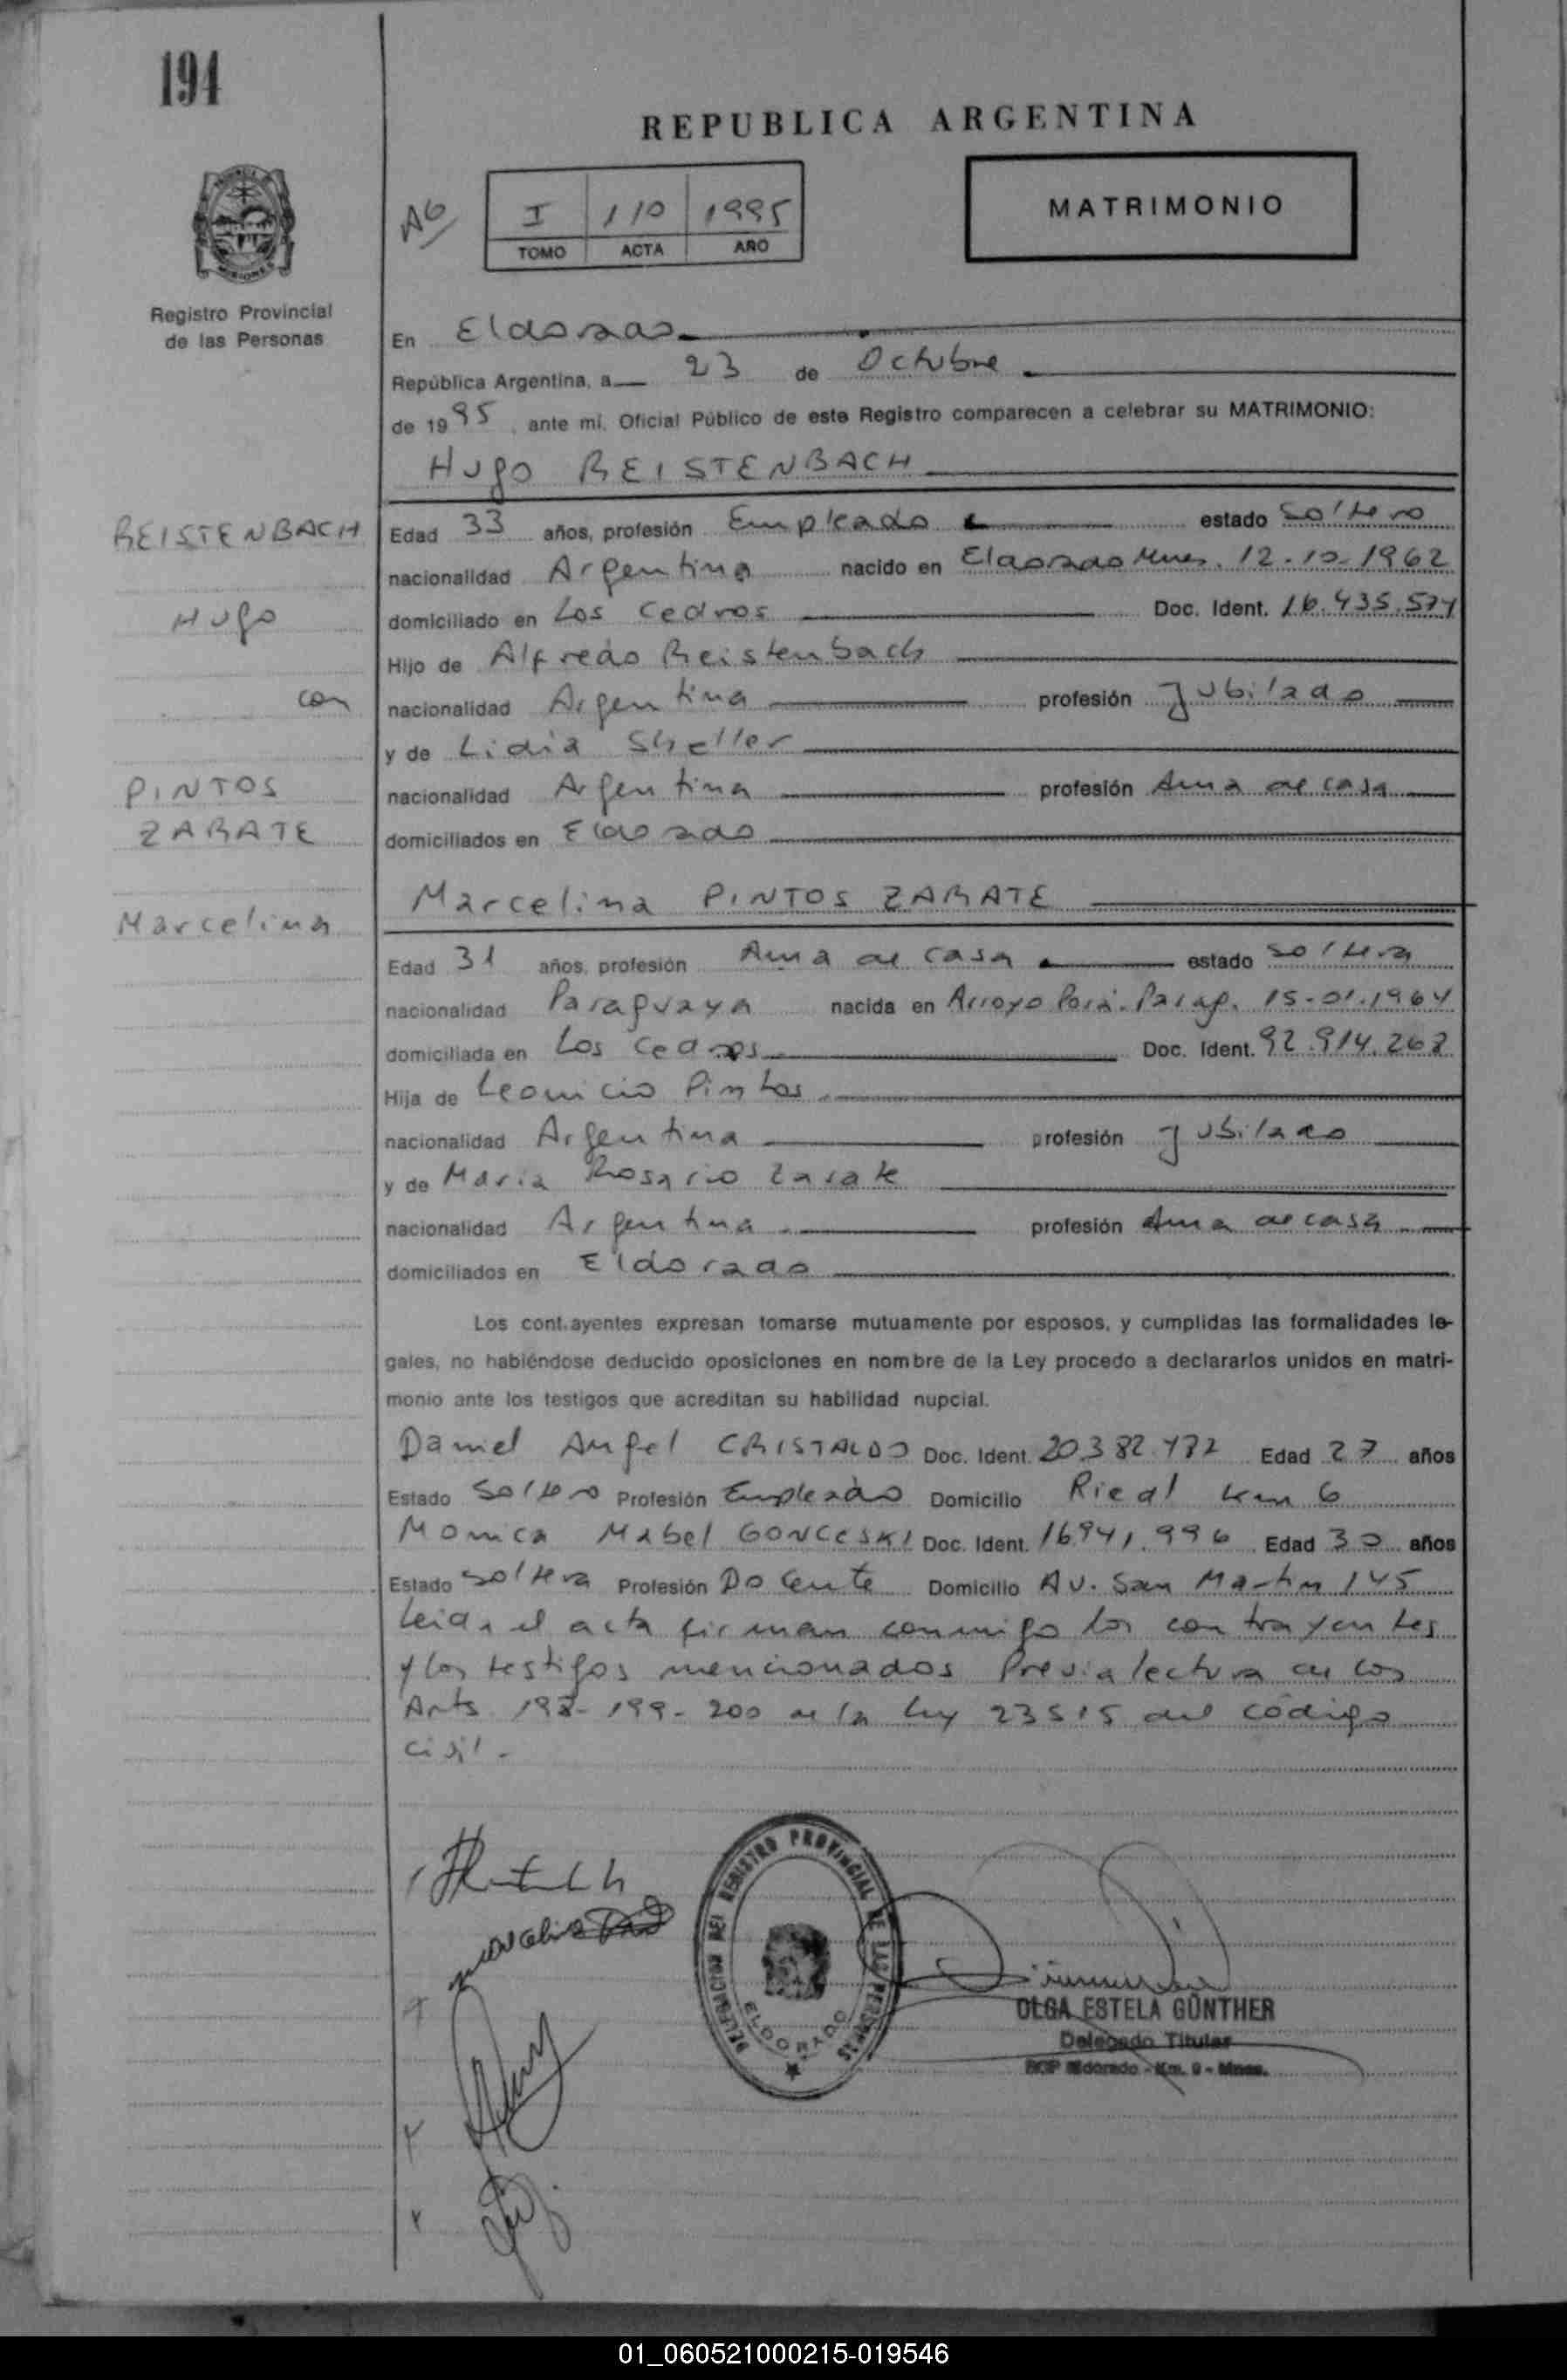 194
REPUBLICA ARGENTINA
A6
I 110 1995
TOMO ACTA AÑO
MATRIMONIO
MISIONES
Registro Provincial
de las Personas
En Eldorado
República Argentina, a 23 de Octubre
de 1995, ante mi, Oficial Público de este Registro comparecen a celebrar su MATRIMONIO:
Hugo REISTENBACH
REISTENBACH
Hugo
con
PINTOS
ZARATE
Marcelina
Edad 33 años, profesión Empleado estado soltero
nacionalidad Argentina nacido en Eldorado Mnes. 12-10-1962
domiciliado en Los Cedros Doc. Ident. 16.435.574
Hijo de Alfredo Reistenbach
nacionalidad Argentina profesión Jubilado
y de Lidia Sheller
nacionalidad Argentina profesión Ama de casa
domiciliados en Eldorado
Marcelina PINTOS ZARATE
Edad 31 años, profesión Ama de casa estado soltera
nacionalidad Paraguaya nacida en Arroyo Porá-Parag. 15-01-1964
domiciliada en Los Cedros Doc. Ident. 92.914.268
Hija de Leonicio Pintos
nacionalidad Argentina profesión Jubilado
y de Maria Rosario Zarate
nacionalidad Argentina profesión Ama de casa
domiciliados en Eldorado
Los contrayentes expresan tomarse mutuamente por esposos, y cumplidas las formalidades le-
gales, no habiéndose deducido oposiciones en nombre de la Ley procedo a declararlos unidos en matri-
monio ante los testigos que acreditan su habilidad nupcial.
Daniel Angel CRISTALDO Doc. Ident. 20.382.472 Edad 27 años
Estado soltero Profesión Empleado Domicilio Riedl km 6
Monica Mabel GONCESKI Doc. Ident. 16.941.996 Edad 30 años
Estado soltera Profesión Docente Domicilio Av. San Martin 145
Leida el acta firman conmigo los contrayentes
y los testigos mencionados Previa lectura de los
Arts 198-199-200 de la Ley 23515 del código
civil-
DELEGACION DEL REGISTRO PROVINCIAL DE LAS PERSONAS
ELDORADO
OLGA ESTELA GÜNTHER
Delegado Titular
RCP Eldorado - Km. 9 - Mnes.
01_060521000215-019546